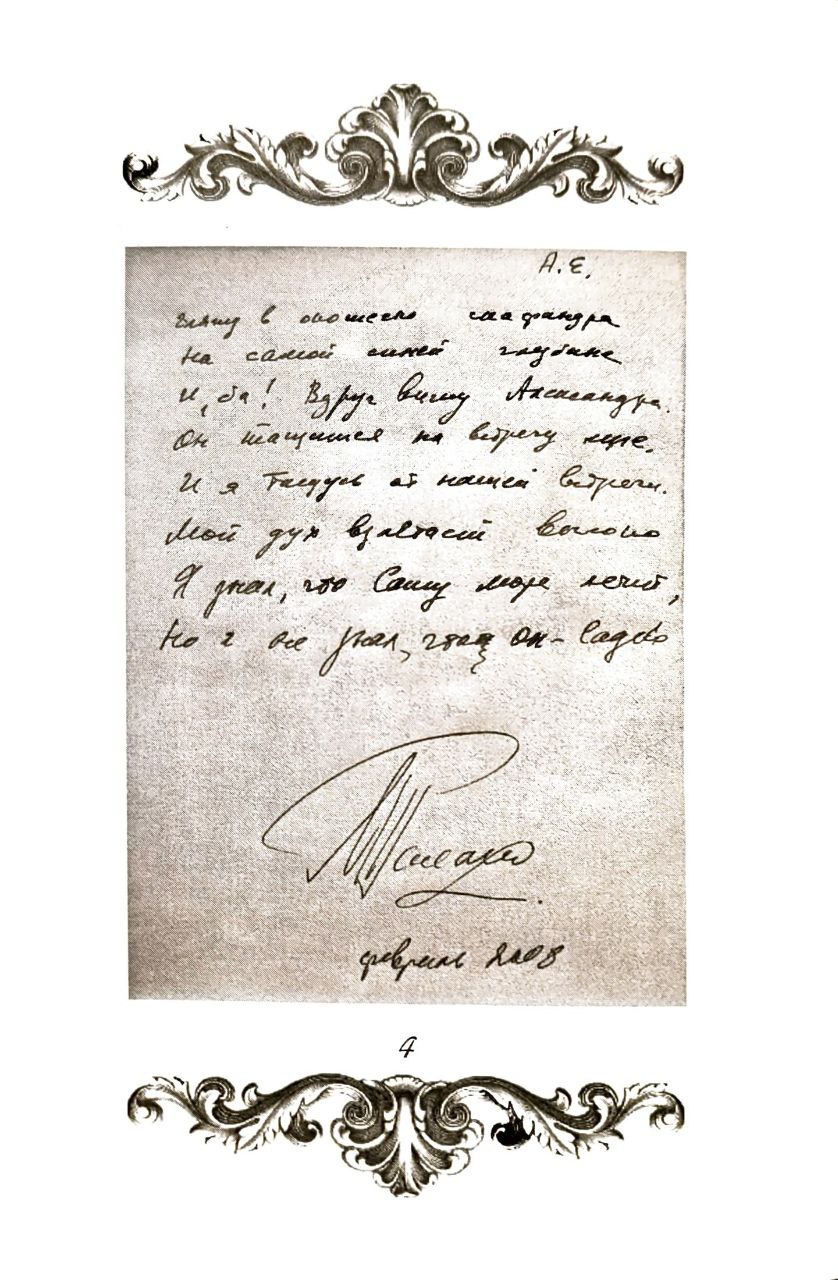 А.Е.
Гляжу в окошечко скафандра
На самой синей глубине
И, ба! Вдруг вижу Александра.
Он тащится на встречу мне.
И я тащусь от нашей встречи.
Мой дух взлетает высоко
Я знал, что Сашу море лечит,
Но я не знал, что он - Садко
февраль 2008
4